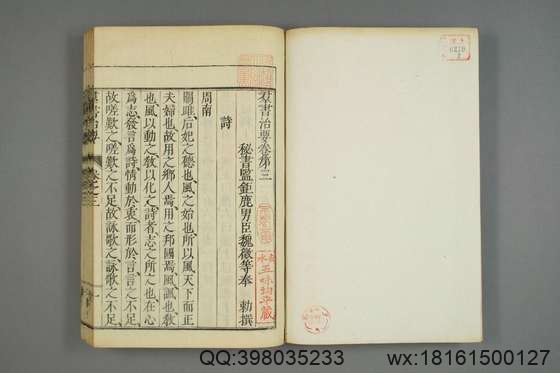 羣書治要卷第三
秘書監鉅鹿男臣魏徵等奉 勅撰
詩
周南
關雎后妃之德也風之始也所以風天下而正
夫婦也故用之鄉人焉用之邦國焉風諷也敎
也風以動之敎以化之詩者志之所之也在心
爲志發言爲詩情動於衷而形於言言之不足
故嗟歎之嗟歎之不足故詠歌之詠歌之不足
QQ:398035233
wx:18161500127